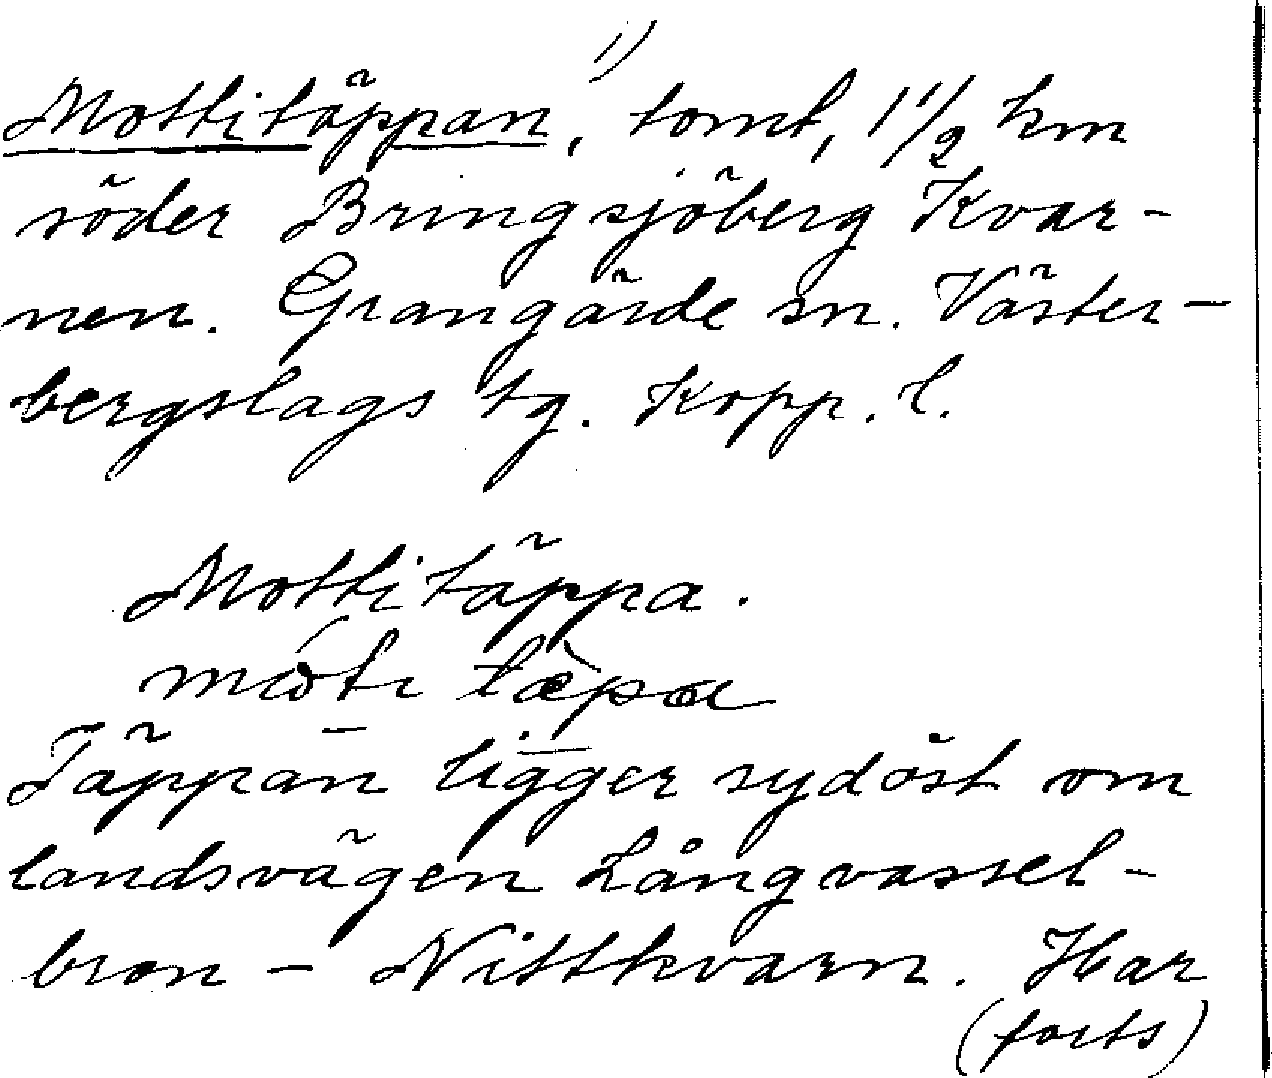 1)
Mottitäppan, tomt, 1 1/2 km
söder Bringsjöberg Kvar-
nen. Grangärde sn. Väster-
bergslags tg. Kopp. l.
Mottitäppa.
Täppan ligger sydöst om
landsvägen Långvassel-
bron - Nittkvarn. Har
(forts)